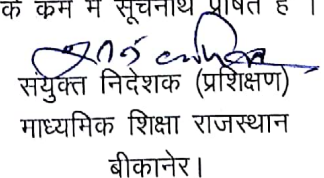 के क्रम में सूचनार्थ प्रेषित है ।
संयुक्त निदेशक (प्रशिक्षण)
माध्यमिक शिक्षा राजस्थान
बीकानेर।